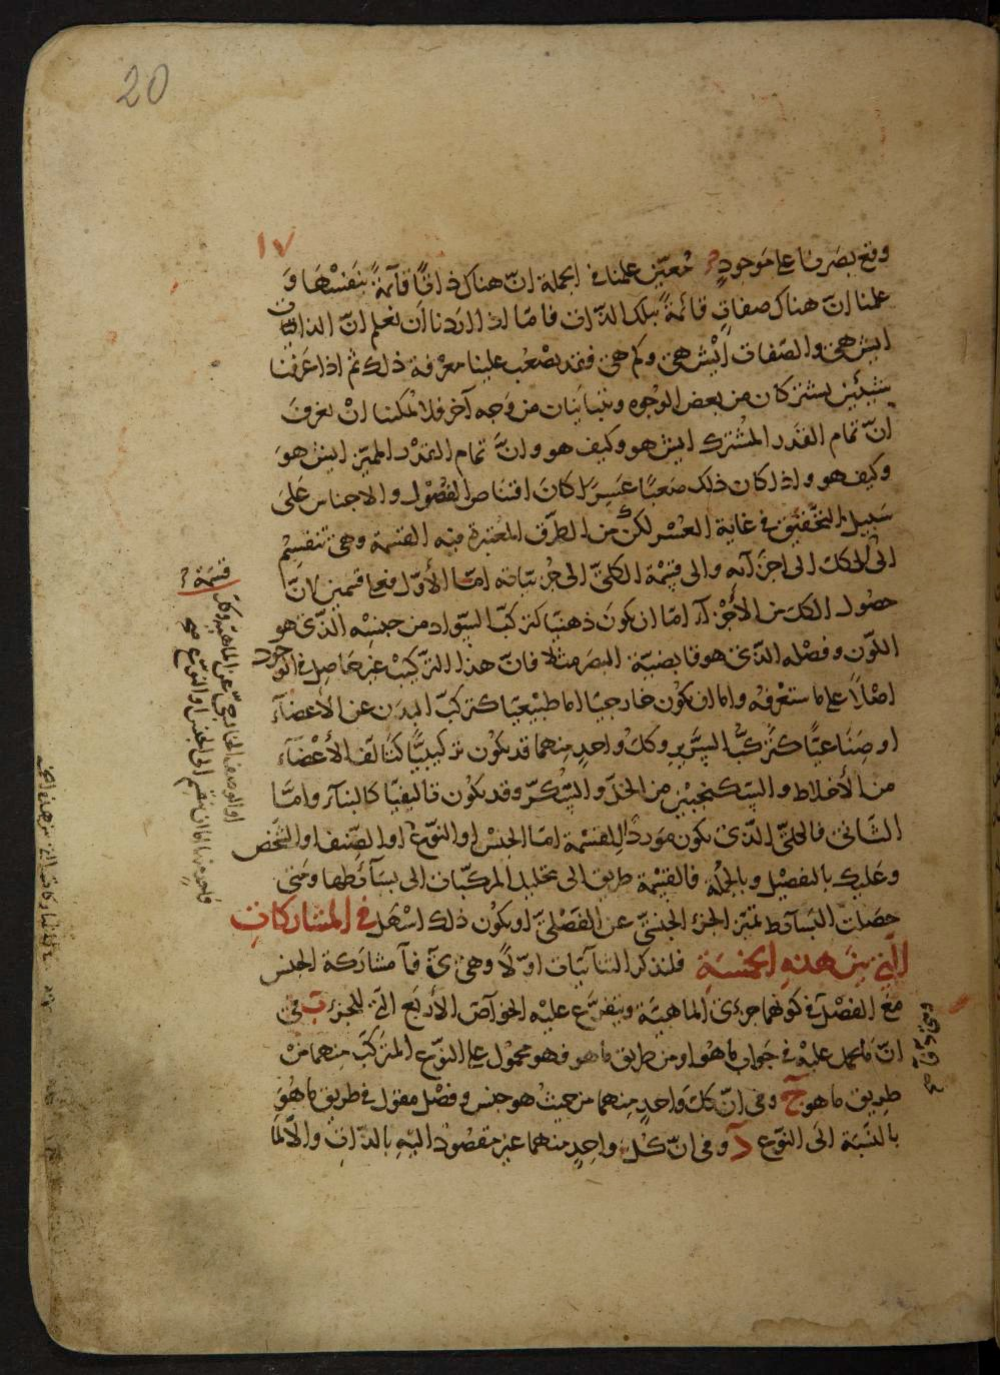 20
١٧
وقع بصرنا على موجود معيّن علمنا فى الجملة انّ هناك ذاتًا قآئمةً بنفسْهَا وَ
علمنا انّ هناك صفاتٍ قائمةً بتلك الذّات فامّا اذا اردنا ان نعلم انّ الذات
ايش هى والصّفات ايْش هى وكم هى فقد يصْعُب علينا معْرفة ذلك ثم اذا عَرفْنا
شيئَين يشتركان من بعض الوُجوه ويتباينان من وَجه آخر فلا يمكننا انْ نعرفَ
انّ تمام القَدر المشْترك ايش هو وكيف هو وانَّ تمام القدْر المميّز ايش هوَ
وكيف هو واذا كان ذلك صَعبًا عَسِرًا كانَ اقتناص الفصُول والاجناس عَلىَ
سَبيل التحْقيق فى غاية العُسْر لكنْ من الطرّق المعتبرة فيه القسمة وهى تنقسِمْ
الى الكل الى اجزآئه والى قسْمة الكلىّ الى جزئياته امّا الأوّل فعلى قسمين لانّ
حصُول الكل من الأجْزآء امّا ان يكونَ ذهنيّا كتركّب السّواد من جنسِه الذّى هو
اللّون وفصْله الذّى هو قابضيّة البصَر مثلًا فانّ هذا التركيبْ غير حَاصِل فى الوجود
اصْلًا على ما ستعْرفُه واما ان يكوُن خارجيّا اما طبيْعيّا كتركبّ البدَن عن الأعضآء
او صِنَاعيًّا كتركُّب السَّرير وكلّ واحدٍ منهما قد يكوْن تركيبيًّا كتالّف الأعْضآء
من الأخلاط والسّكنجبيْن من الخلّ والسّكرّ وقد يكوُن تاليفيّا كالبنآء وامّا
الثّانى فالكلىّ الذّى يكون مَوردًا للقسْمة امّا الجنسْ او النّوع او الصِّنف او الشّخص
وعَليك بالتفصْيل وبالجمْلة فالقسْمة طريق الى تحليل المركّبات الى بسَآئطها ومتى
حصَلت البسَآئط تميّز الجزء الجنسىّ عن الفصْلىّ او يكوُن ذلك اسْهَل فى المشاركاتِ
الّتى بيْن هذه الخمسَةِ فلنذكر الثنآئيّات اوّلًا وهى ىَ آ فآ مشاركة الجنس
معَ الفصْل فى كونهما جزءَى الماهيّة ويتفرّع عليْه الخوآصّ الأربَع التى للجزء ب فى
انّ ما يحمل عليْه فى جَواب ما هُو او من طريق ما هو فهو محموُل على النوّع المتركّب منهما منْ
طريق ما هو ج وفى انّ كلّ وَاحدٍ منهما من حيث هُو جنس وفصْل مقول فى طريق ما هُوَ
بالنسْبَة الىَ النوّع د وفى انّ كلّ واحِدٍ منهما غير مقصُود اليْهِ بالذّات والّا لمَا
قسمة
او الوصف الخارجىّ عن الماهيّة وكلّ